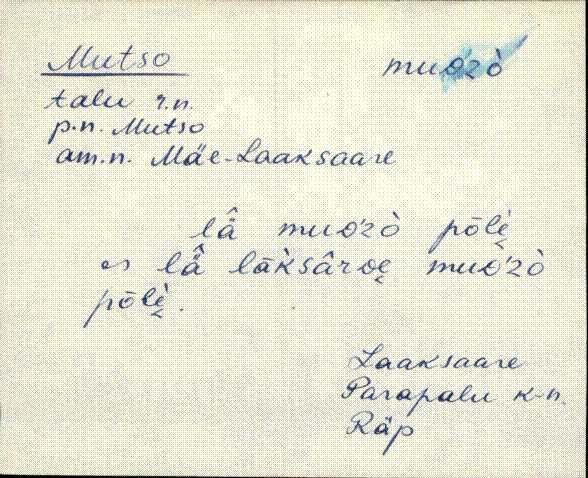 Mutso muᴅ́zò
talu r.n.
p.n. Mutso
am.n. Mäe-Laaksaare
lâ̈ muᴅ́zò pōlè̬
es lâ̈ lāk̀sâroe̬ muᴅ́zò
pōlè̬.
Laaksaare
Parapalu k-n.
Räp